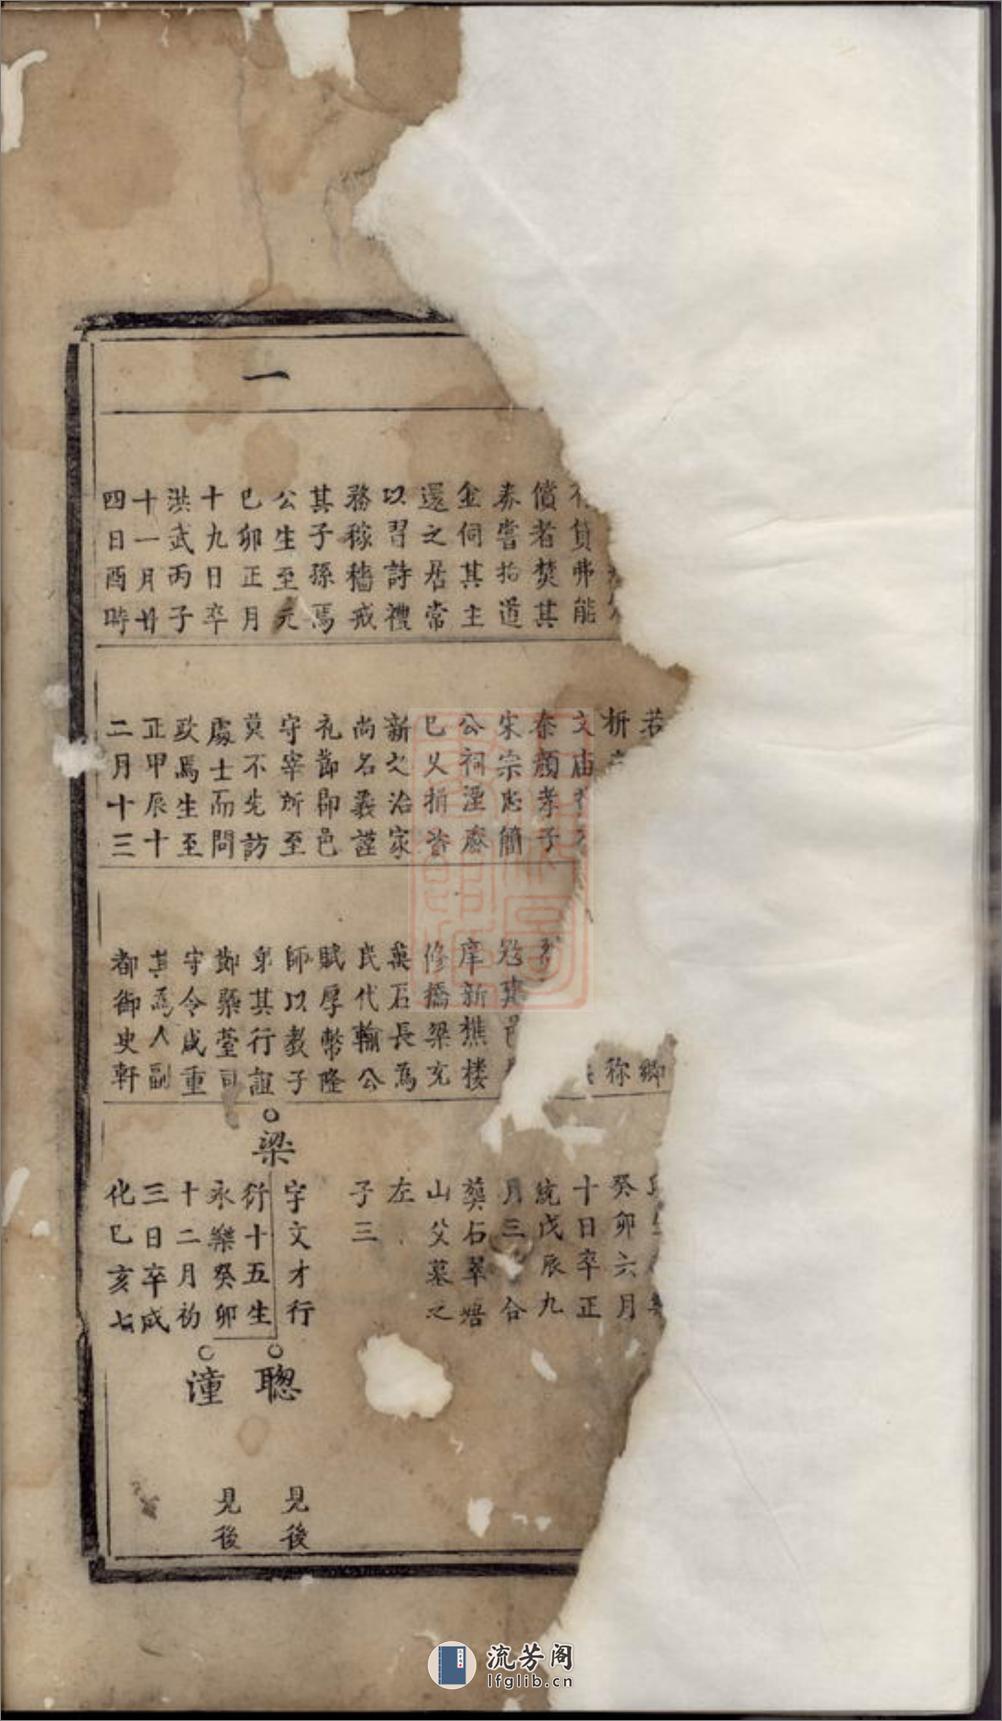 一
貸弗能
償者焚其
券嘗拾道
金伺其主
還之居常
以習詩禮
務稼穡戒
其子孫焉
公生至元
己卯正月
十九日卒
洪武丙子
十一月廿
四日酉時
若
析
文庙
秦顏孝子
宋宗忠簡
公祠湮廢
已乆捐眥
新之治家
尚名義謹
礼節郎邑
守宰所至
莫不先訪
處士而問
政焉生至
正甲辰十
二月十三
鄉
称
庠新樵楼
修橋梁充
義石長為
民代輸公
賦厚幣隆
師以教子
弟其行誼
鄭藥臺司
守令咸重
其為人副
都御史軒
癸卯六月
十日卒正
統戊辰九
月三 合
葬石翠塘
山父墓之
左
子三
梁
字文才行
衍十五生
永樂癸卯
十二月初
三日卒成
化己亥七
聰
見後
潼
見後
流芳阁
lfglib.cn